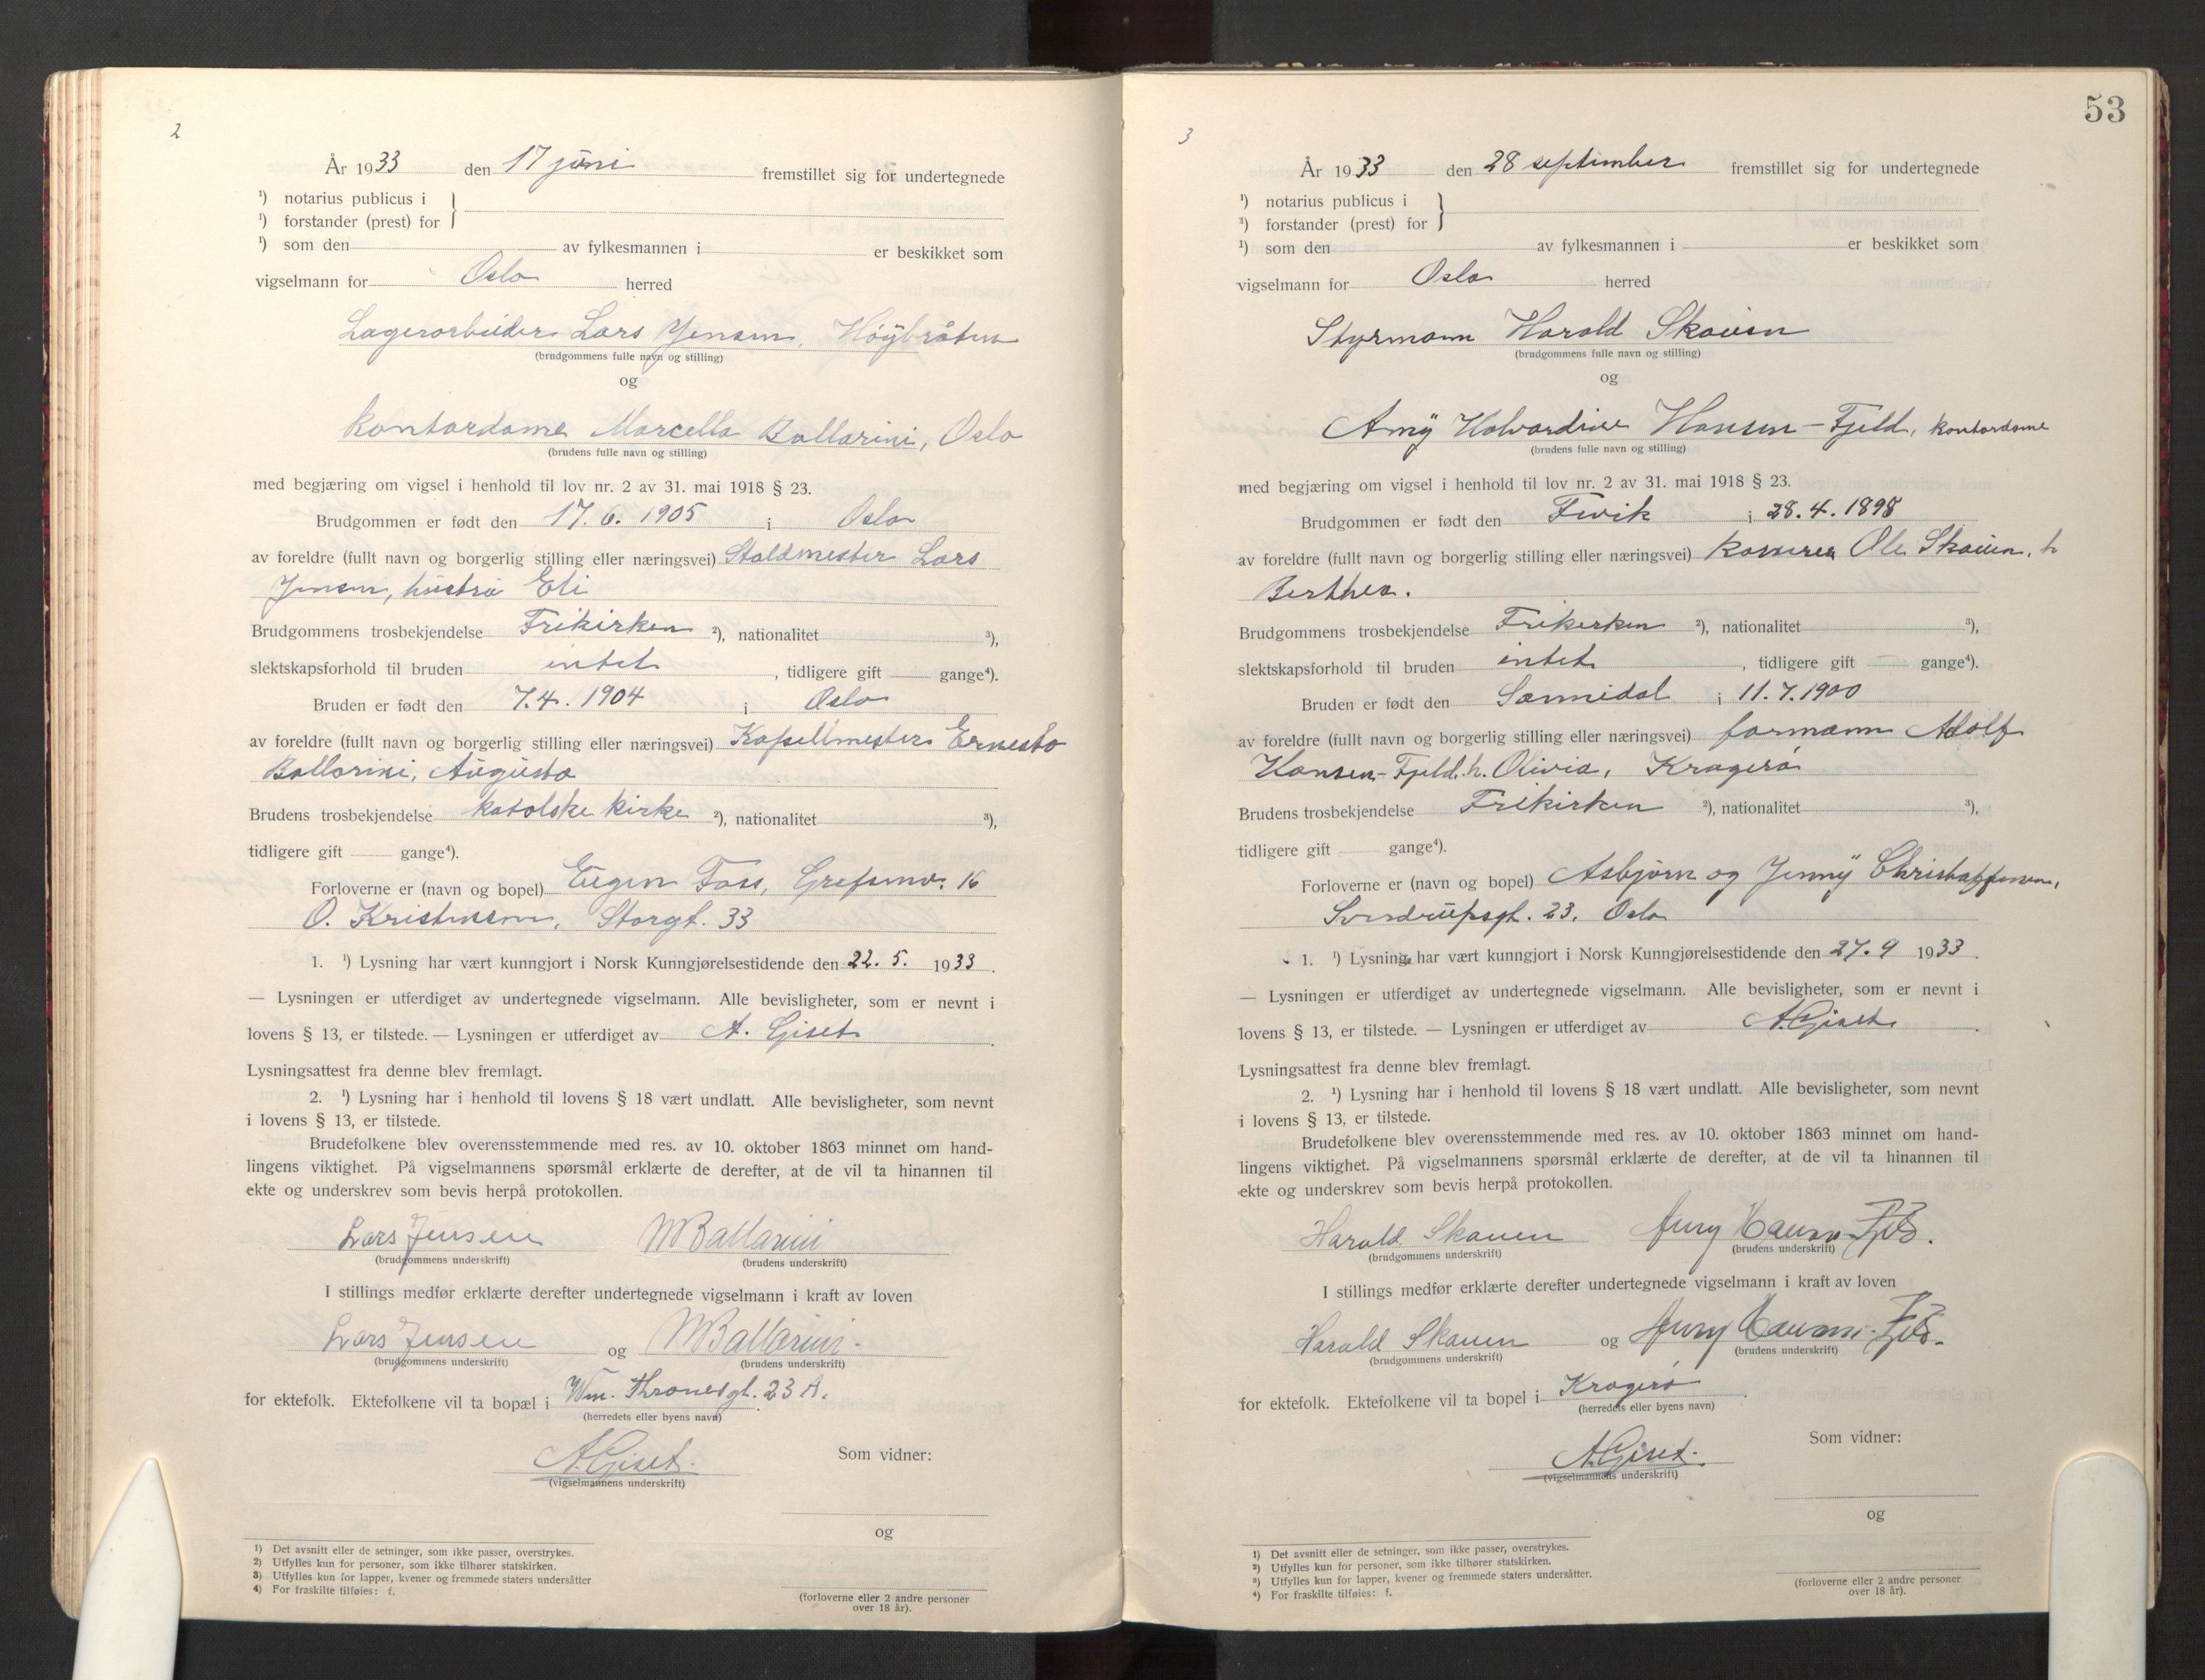 2
År 1933 den 17 juni fremstillet sig for undertegnede
¹) notarius publicus i
¹) forstander (prest) for
¹) som den av fylkesmannen i er beskikket som
vigselmann for Oslo herred
Lagerarbeider Lars Jensen, Høybråten
(brudgommens fulle navn og stilling)
og
Kontordame Marcella Ballarini, Oslo
(brudens fulle navn og stilling)
med begjæring om vigsel i henhold til lov nr. 2 av 31. mai 1918 § 23.
Brudgommen er født den 17.6.1905 i Oslo
av foreldre (fullt navn og borgerlig stilling eller næringsvei) Staldmester Lars
Jensen, hustru Eli
Brudgommens trosbekjendelse Frikirken ²), nationalitet ³),
slektskapsforhold til bruden intet, tidligere gift gange⁴).
Bruden er født den 7.4.1904 i Oslo
av foreldre (fullt navn og borgerlig stilling eller næringsvei) Kapellmester Ernesto
Ballarini, Augusta
Brudens trosbekjendelse katolske kirke ²), nationalitet ³),
tidligere gift gange⁴).
Forloverne er (navn og bopel) Eugen Foss, Grefsenv. 16
O. Kristensen, Storgt. 33
1. ¹) Lysning har vært kunngjort i Norsk Kunngjørelsestidende den 22.5. 1933.
— Lysningen er utferdiget av undertegnede vigselmann. Alle bevisligheter, som er nevnt i
lovens § 13, er tilstede. — Lysningen er utferdiget av A. Giset.
Lysningsattest fra denne blev fremlagt.
2. ¹) Lysning har i henhold til lovens § 18 vært undlatt. Alle bevisligheter, som nevnt
i lovens § 13, er tilstede.
Brudefolkene blev overensstemmende med res. av 10. oktober 1863 minnet om hand-
lingens viktighet. På vigselmannens spørsmål erklærte de derefter, at de vil ta hinannen til
ekte og underskrev som bevis herpå protokollen.
Lars Jensen MBallarini
(brudgommens underskrift) (brudens underskrift)
I stillings medfør erklærte derefter undertegnede vigselmann i kraft av loven
Lars Jensen og MBallarini.
(brudgommens underskrift) (brudens underskrift)
for ektefolk. Ektefolkene vil ta bopæl i Wm. Thranesgt. 23 A.
(herredets eller byens navn)
A. Giset. Som vidner:
(vigselmannens underskrift)
og
(forloverne eller 2 andre personer
over 18 år).
1) Det avsnitt eller de setninger, som ikke passer, overstrykes.
2) Utfylles kun for personer, som ikke tilhører statskirken.
3) Utfylles kun for lapper, kvener og fremmede staters undersåtter
4) For fraskilte tilføies: f.
53
3
År 1933 den 28 september fremstillet sig for undertegnede
¹) notarius publicus i
¹) forstander (prest) for
¹) som den av fylkesmannen i er beskikket som
vigselmann for Oslo herred
Styrmann Harald Skauen
(brudgommens fulle navn og stilling)
og
Amy Halvardine Hansen-Fjeld, kontordame
(brudens fulle navn og stilling)
med begjæring om vigsel i henhold til lov nr. 2 av 31. mai 1918 § 23.
Brudgommen er født den Fevik i 28.4.1898
av foreldre (fullt navn og borgerlig stilling eller næringsvei) kasserer Ole Skauen, h
Berthea.
Brudgommens trosbekjendelse Frikerken ²), nationalitet ³),
slektskapsforhold til bruden intet, tidligere gift gange⁴).
Bruden er født den Sannidal i 11.7.1900
av foreldre (fullt navn og borgerlig stilling eller næringsvei) formann Adolf
Hansen-Fjeld, h. Olivia, Kragerø
Brudens trosbekjendelse Frikirken ²), nationalitet ³),
tidligere gift gange⁴).
Forloverne er (navn og bopel) Asbjørn og Jenny Christoffersen,
Sverdrupsgt. 23. Oslo
1. ¹) Lysning har vært kunngjort i Norsk Kunngjørelsestidende den 27.9 1933.
— Lysningen er utferdiget av undertegnede vigselmann. Alle bevisligheter, som er nevnt i
lovens § 13, er tilstede. — Lysningen er utferdiget av A. Giset.
Lysningsattest fra denne blev fremlagt.
2. ¹) Lysning har i henhold til lovens § 18 vært undlatt. Alle bevisligheter, som nevnt
i lovens § 13, er tilstede.
Brudefolkene blev overensstemmende med res. av 10. oktober 1863 minnet om hand-
lingens viktighet. På vigselmannens spørsmål erklærte de derefter, at de vil ta hinannen til
ekte og underskrev som bevis herpå protokollen.
Harald Skauen Amy Hansen-Fjeld.
(brudgommens underskrift) (brudens underskrift)
I stillings medfør erklærte derefter undertegnede vigselmann i kraft av loven
Harald Skauen og Amy Hansen-Fjeld.
(brudgommens underskrift) (brudens underskrift)
for ektefolk. Ektefolkene vil ta bopel i Kragerø.
(herredets eller byens navn)
A. Giset. Som vidner:
(vigselmannens underskrift)
og
(forloverne eller 2 andre personer
over 18 år).
1) Det avsnitt eller de setninger, som ikke passer, overstrykes.
²) Utfylles kun for personer, som ikke tilhører statskirken.
³) Utfylles kun for lapper, kvener og fremmede staters undersåtter.
⁴) For fraskilte tilføies: f.